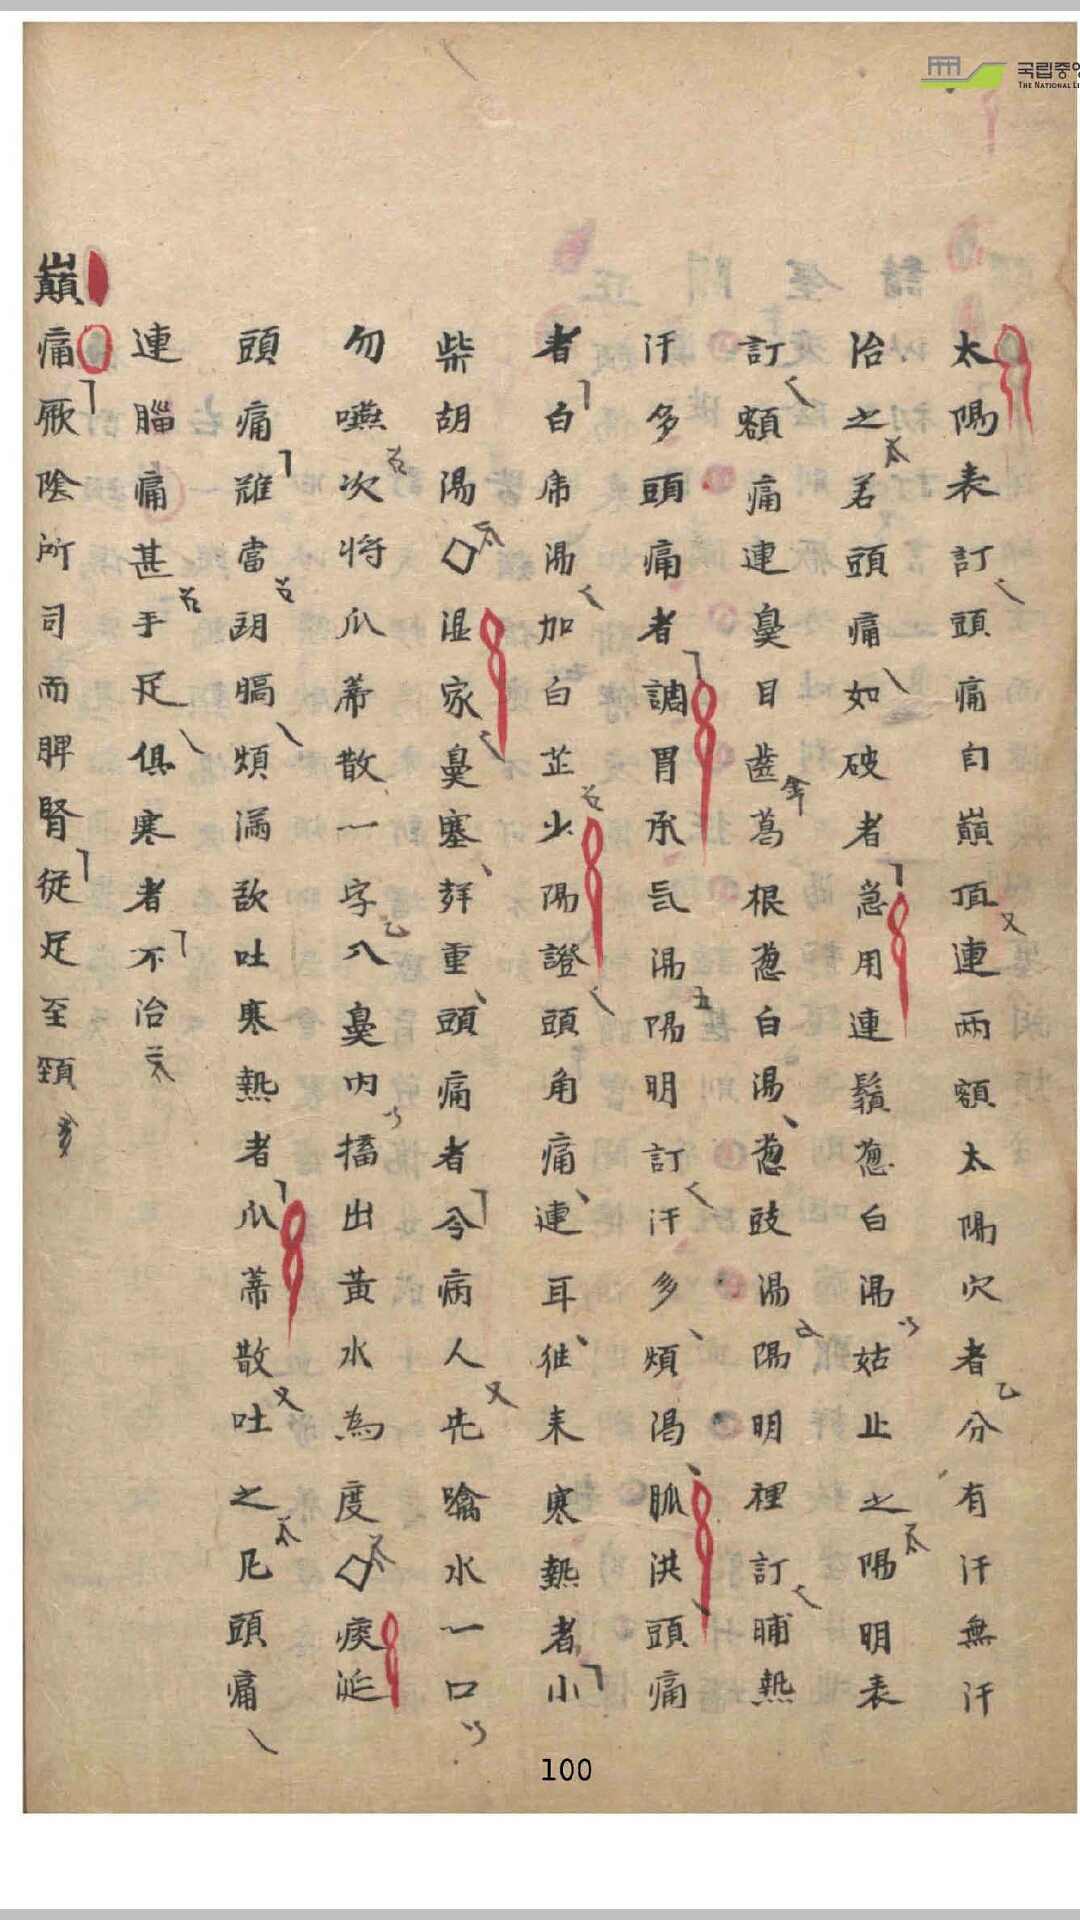 국립중앙
THE NATIONAL LI
太陽表訂頭痛自巔頂連兩額太陽穴者分有汗無汗
治之若頭痛如破者急用連鬚葱白湯姑止之陽明表
訂額痛連鼻目齒葛根葱白湯葱豉湯陽明裡訂晡熱
汗多頭痛者調胃承氣湯陽明訂汗多煩渴脈洪頭痛
者白虎湯加白芷少陽證頭角痛連耳徃来寒熱者小
柴胡湯◇湿家鼻塞聲重頭痛者令病人先噙水一口
勿嚥次将瓜蒂散一字入鼻内搐出黃水為度◇痰涎
頭痛雖當胸膈煩滿欲吐寒熱者瓜蒂散吐之凡頭痛
連腦痛甚手足俱寒者不治
巔痛厥陰所司而脾腎從足至頸
100